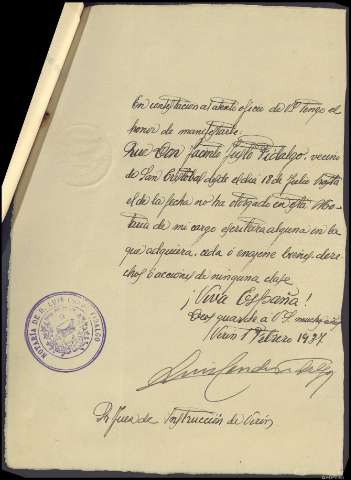 En contestacion a atento oficio de Vª tengo el
honor de manifestarle:
Que Don Vicente Justo Fidalgo, vecino
de San Cristobal desde el dia 18 de Julio hasta
el de la fecha no ha otorgado en esta Nota-
ria de mi cargo escritura alguna en la
que adquiera, ceda ó enagene bienes, dere-
chos ó acciones de ninguna clase
¡Viva España!
Dios guarde a V.S. muchos años
Verin 1º Febrero 1937
Luis
NOTARÍA DE D. LUIS
Sr Juez de Instrucción de Verin